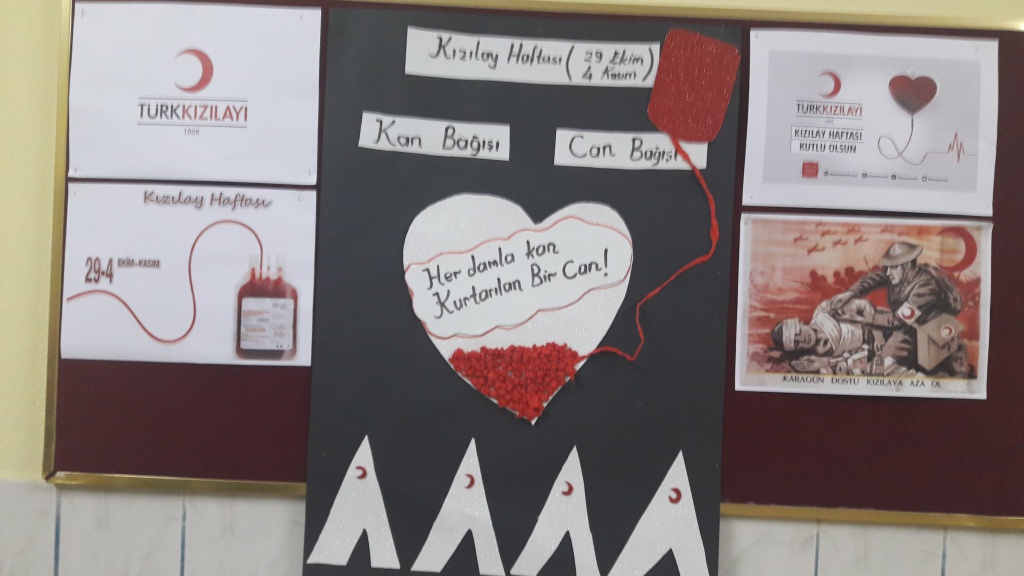 TÜRKKIZILAYI
1868
Kızılay Haftası
29-4 EKİM-KASIM
Kızılay Haftası ( 29 Ekim
4 Kasım )
Kan Bağışı
Can Bağışı
Her damla kan
Kurtarılan Bir Can!
TÜRKKIZILAYI
KIZILAY HAFTASI
KUTLU OLSUN
KARAGÜN DOSTU KIZILAYA AZA OL